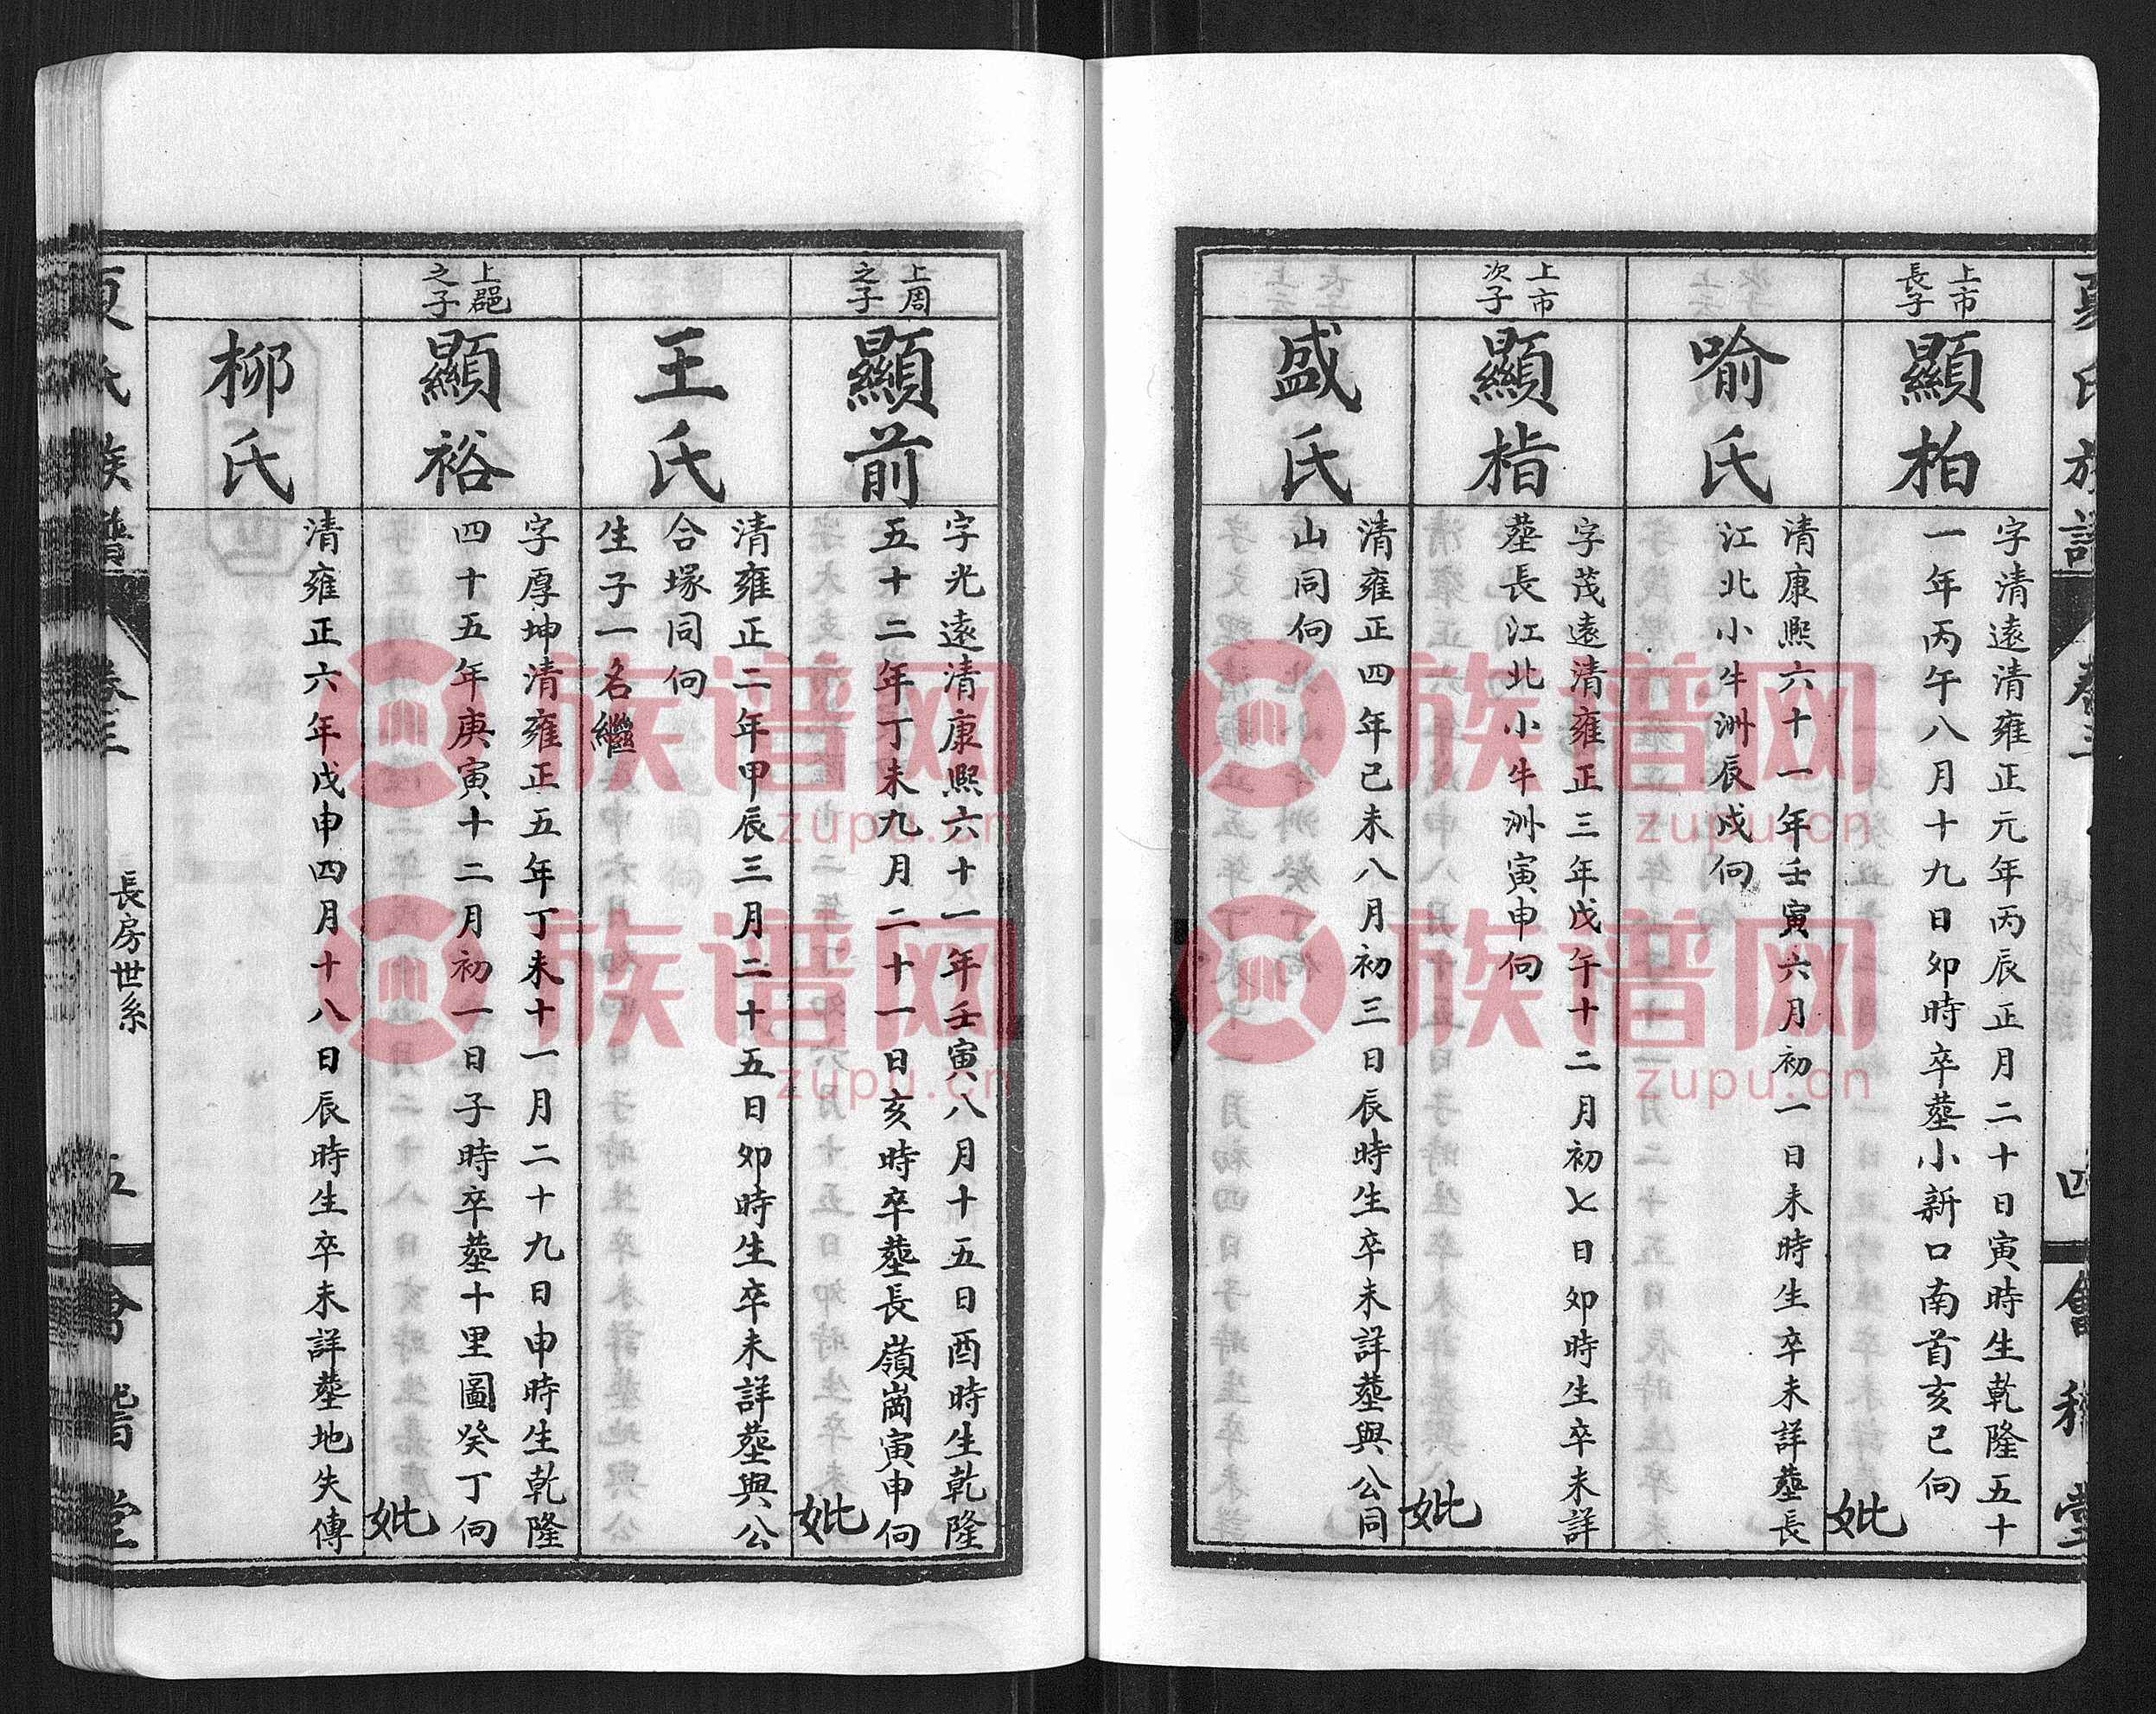 夏氏族譜
卷三
四
會稽堂
上市
長子
顯柏
字清遠清雍正元年丙辰正月二十日寅時生乾隆五十
一年丙午八月十九日卯時卒塟小新口南首亥巳向
妣
喻氏
清康熙六十一年壬寅六月初一日未時生卒未詳塟長
江北小牛洲辰戌向
上市
次子
顯㭕
字茂遠清雍正三年戊午十二月初七日卯時生卒未詳
塟長江北小牛洲寅申向
妣
盛氏
清雍正四年己未八月初三日辰時生卒未詳塟與公同
山同向
上周
之子
顯前
字光遠清康熙六十一年壬寅八月十五日酉時生乾隆
五十二年丁未九月二十一日亥時卒塟長嶺崗寅申向
妣
王氏
清雍正二年甲辰三月二十五日卯時生卒未詳塟與公
合塚同向
生子一名繼
上郒
之子
顯裕
字厚坤清雍正五年丁未十一月二十九日申時生乾隆
四十五年庚寅十二月初一日子時卒塟十里圖癸丁向
妣
柳氏
清雍正六年戊申四月十八日辰時生卒未詳塟地失傳
夏氏族譜
卷三
長房世系
五
會稽堂
族谱网
zupu.cn
族谱网
zupu.cn
族谱网
zupu.cn
族谱网
zupu.cn